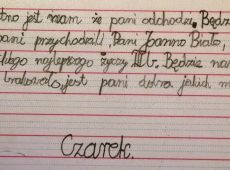 tno jest nam że pani odchodzi. Będzi
pani przychodzili, Pani Joanno Biało,
najlepszego życzy III b. Będzie na
jest pani dobra jakich m
Czarek.